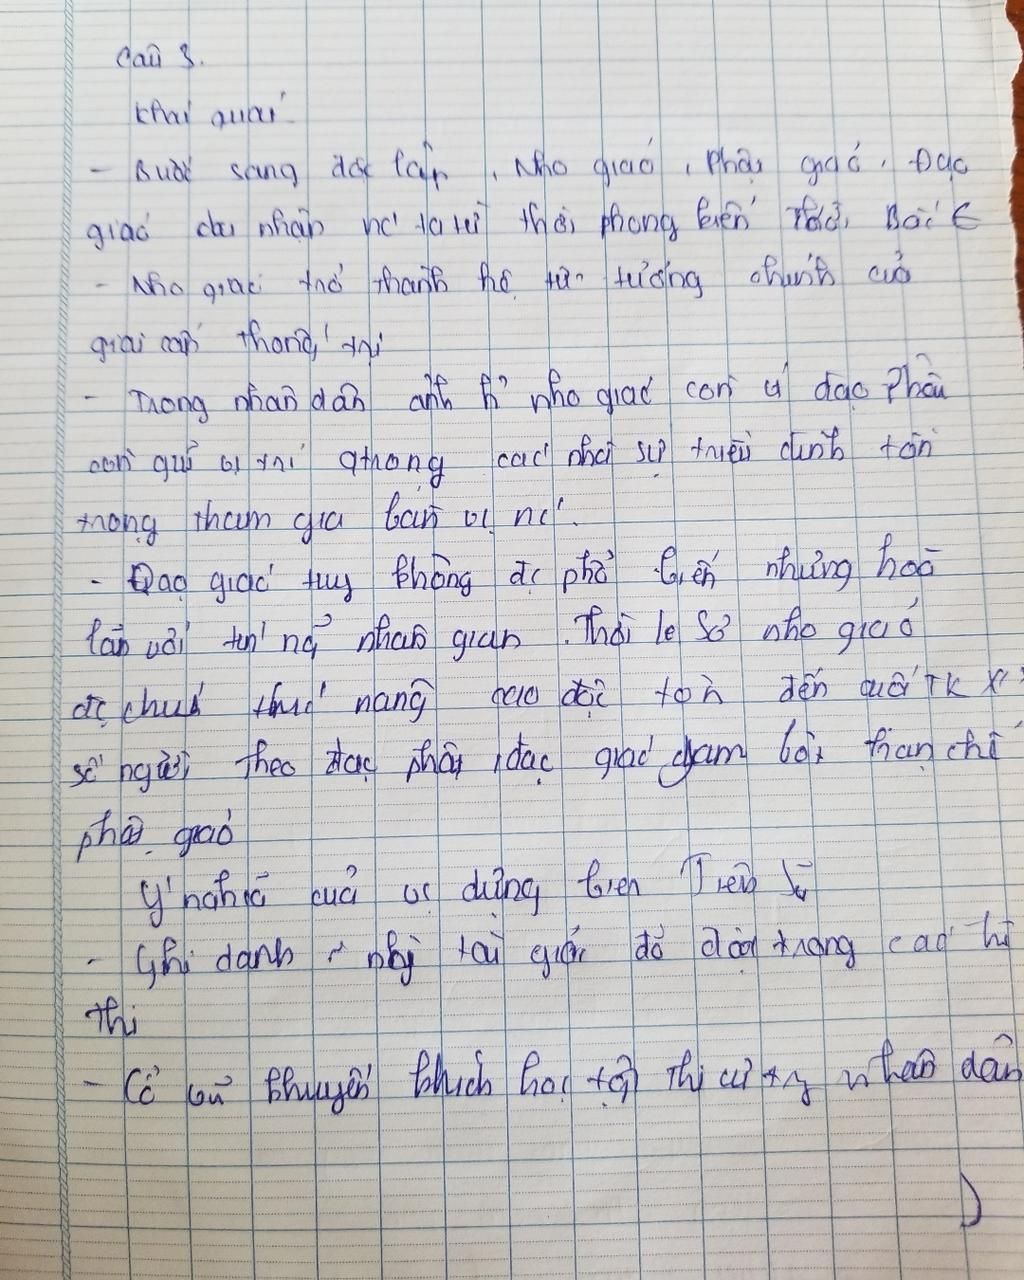 Câu 3.
Khái quát
- Bước sang độc lập, Nho giáo, Phật giáo, Đạo
giáo du nhập nc ta từ thời phong kiến
- Nho giáo trở thành hệ tư tưởng chính của
giai cấp thống trị
- Trong nhân dân nho giáo còn ít đạo Phật
còn giữ vị trí qtrọng các nhà sư triều đình tôn
trọng tham gia bàn vc nc.
- Đạo giáo tuy không đc phổ biến nhưng hoà
lẫn với tín ng nhân gian. Thời lê Sơ nho giáo
đc chính thức nâng cao độc tôn đến cuối TK
số người theo đạo phật, đạo giáo giảm bớt hạn chế
phật giáo
Ý nghĩa của vc dựng bia Tiến Sĩ
- Ghi danh tài giỏi đỗ đạt trong các kì
thi
- Cổ vũ khuyến khích học tập thi cử nhân dân